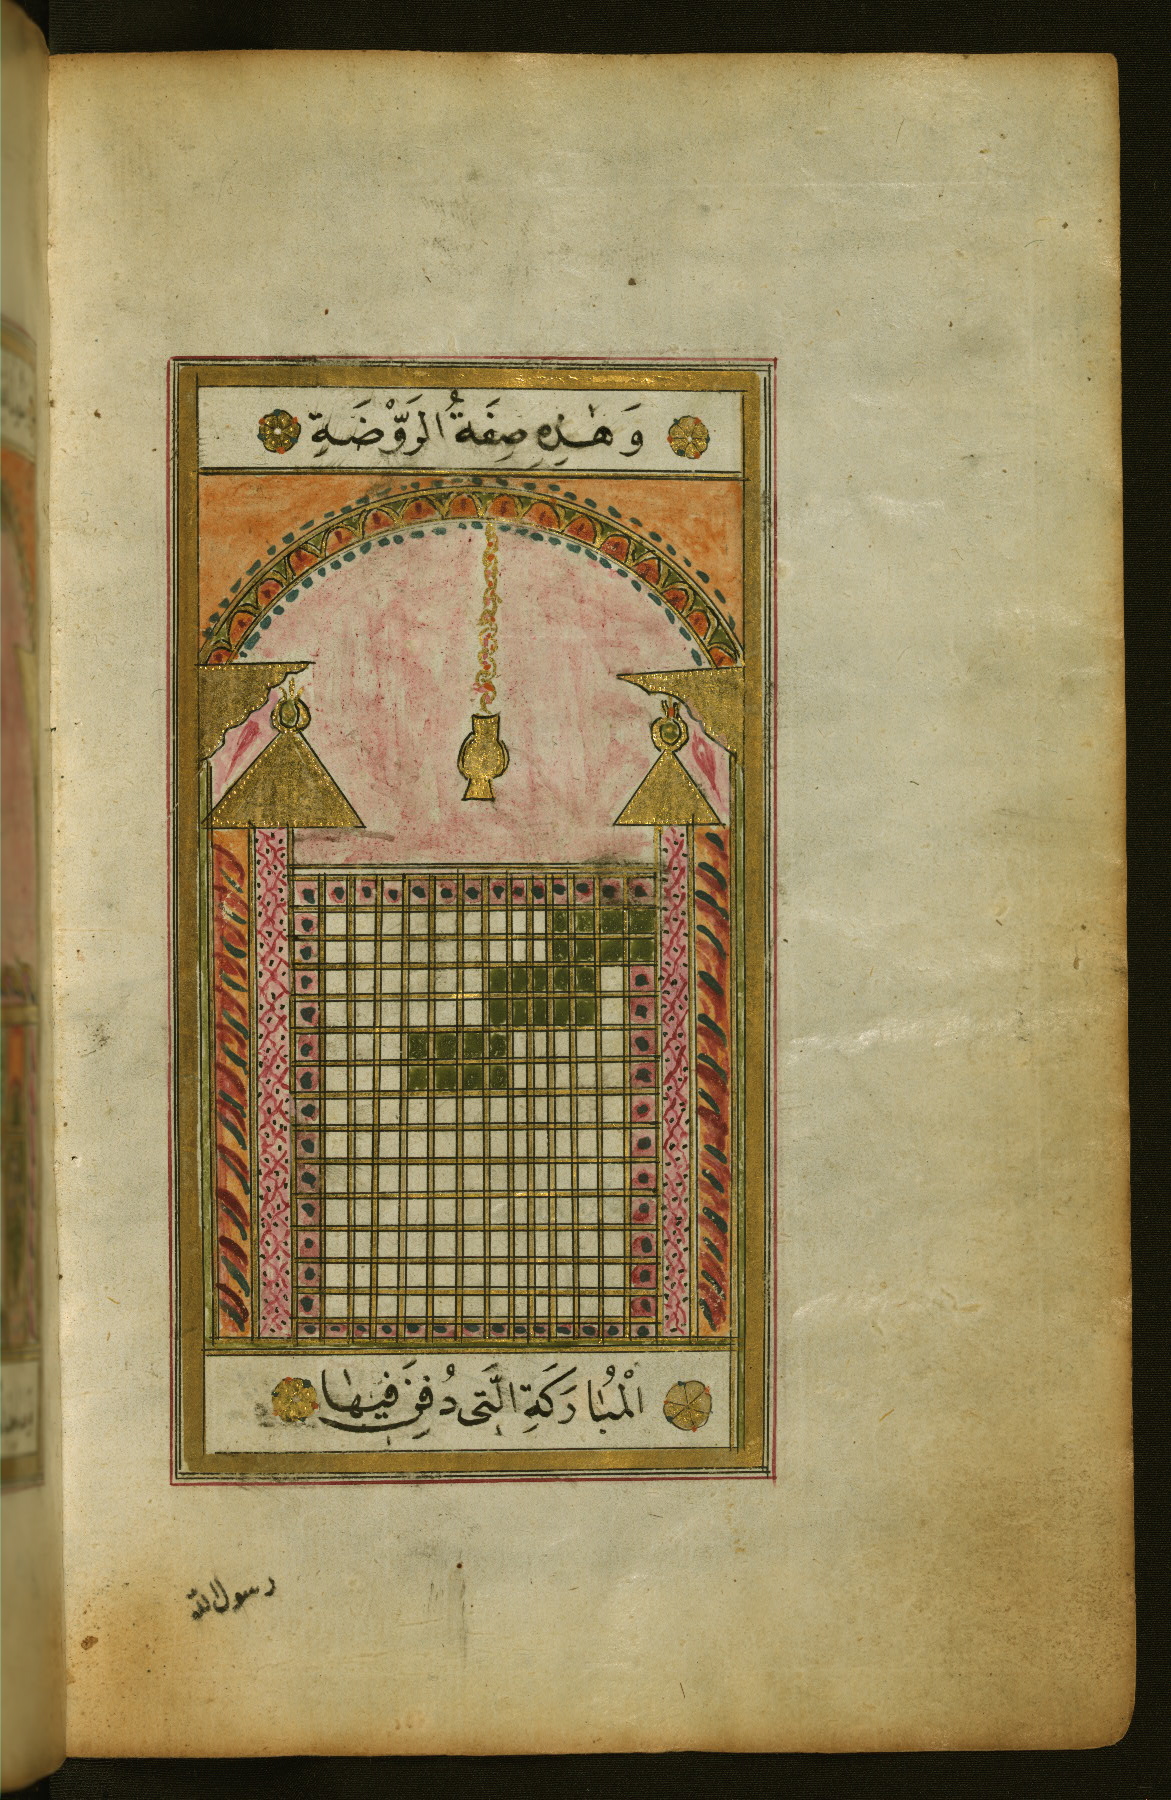 وَهٰذِهِ صِفَةُ الرَوَّضَةِ
الْمُبَارَكَةِ الَّتِى دُفِنَ فِيهَا
رسول الله